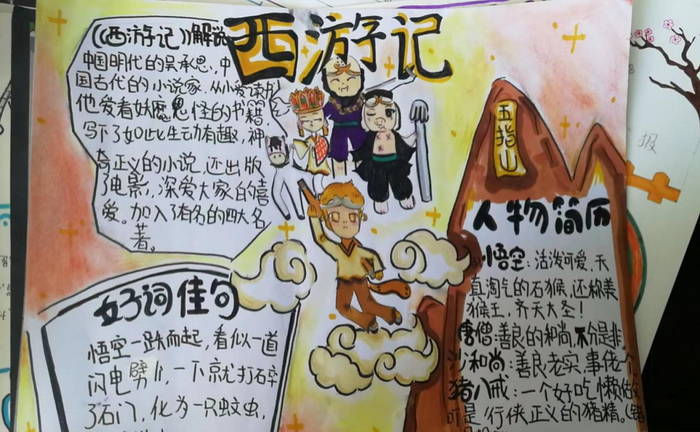 西游记
《西游记》解说
中国明代的吴承恩,中
国古代的小说家,从小爱读
他爱看妖魔鬼怪的书籍
写下了如此生动有趣,神
奇正义的小说,还出版
了电影,深爱大家的喜
爱。加入了有名的四大名
著。
好词佳句
悟空一跌而起,看似一道
闪电劈儿,一下就打石卒
了石门,化为一只蚊虫,
五指山
人物简历
悟空:活泼可爱,天
真淘气的石猴,还称美
猴王,齐天大圣!
唐僧:善良的和尚,不分是非
沙和尚:善良老实,事佬个
猪八戒:一个好吃懒做
可是行侠正义的猪精。
报